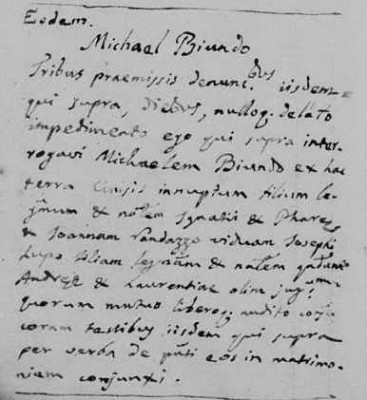 Eodem.
Michael Biundo
Tribus praemissis denunc.bus iisdem=
qui supra, diebus, nulloq. delato
impedimento ego qui supra inter=
rogavi Michaelem Biundo ex hac
terra Cinisis innuptum filium le=
g.mum & n.lem Ignatii &
& Joannam Randazzo viduam Josephi
Lupo filiam leg.mam & n.lem q.dam
Andreę & Laurentiae olim jug.
quorum mutuo libero q. audito cons.
coram testibus iisdem qui supra
per verba de p.nti eos in matrimo-
niem conjunxi.